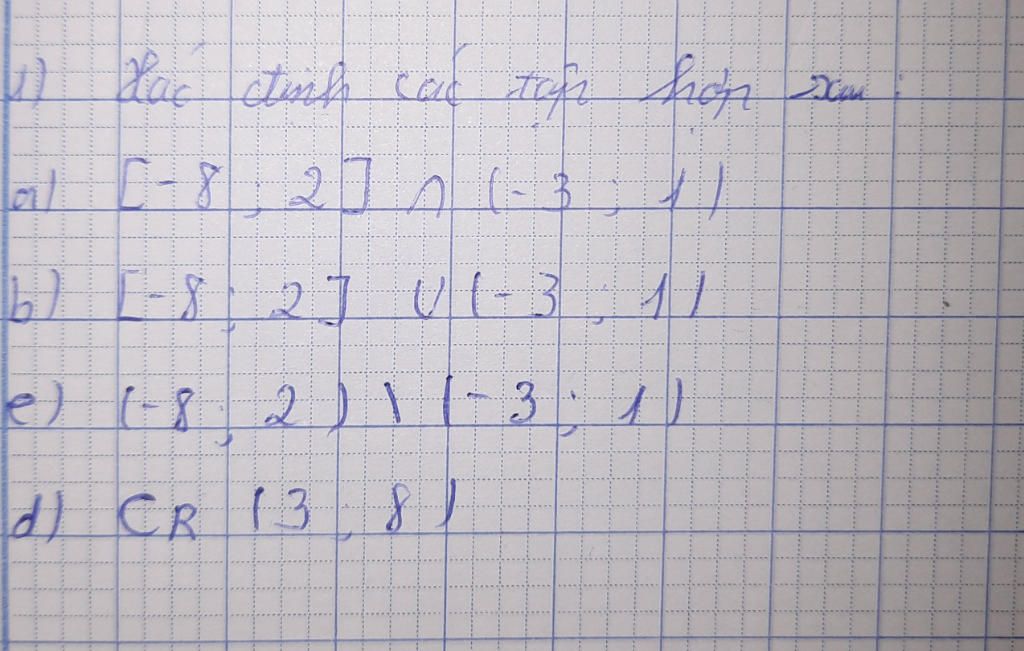 1) Xác định các tập hợp sau:
a) [-8 ; 2] ∩ (-3 ; 1)
b) [-8 ; 2] ∪ (-3 ; 1)
c) (-8 ; 2) \ (-3 ; 1)
d) CR (3 ; 8)